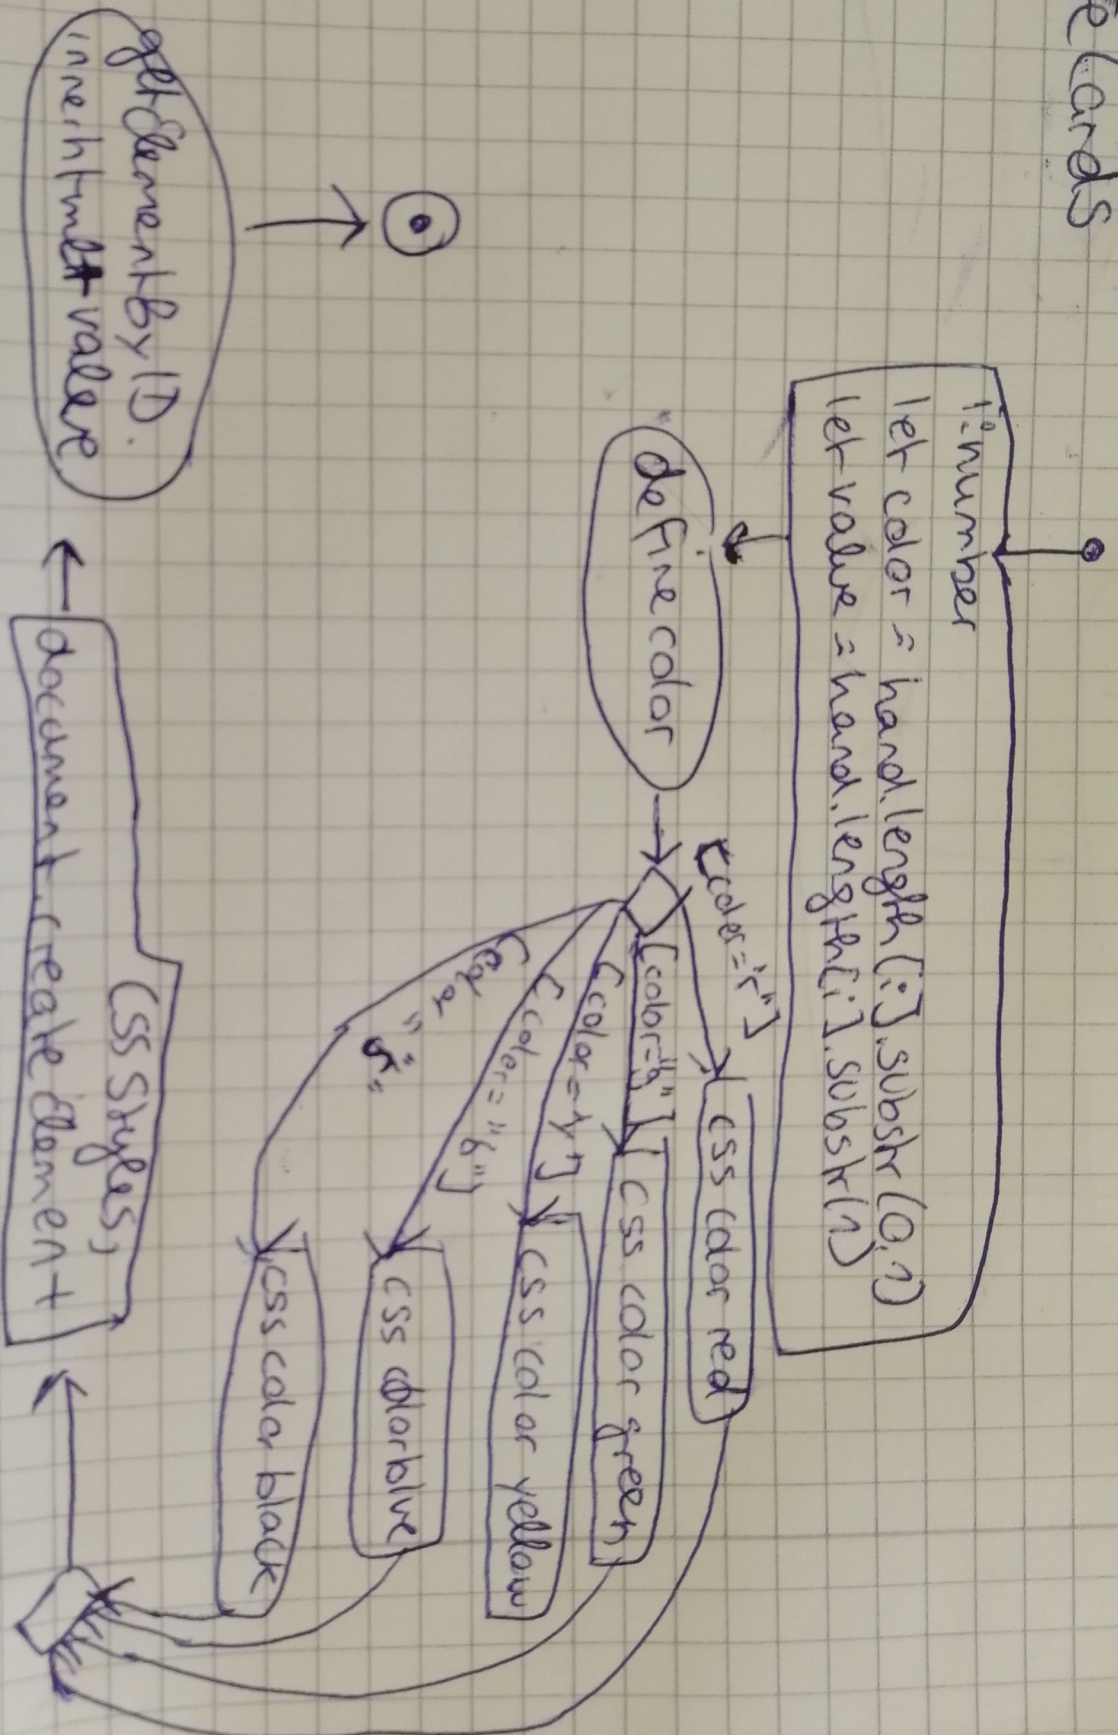 eCards
i:number
let color = hand.length[i].substr(0,1)
let value = hand.length[i].substr(1)
define color
[color="r"]
css color red
[color="g"]
css color green
[color=y"]
css color yellow
[color="b"]
css colorblue
css color black
css styles,
document.createElement
getElementByID
innerhtml+value